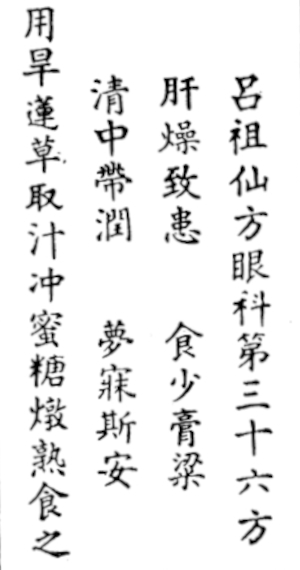 呂祖仙方眼科第三十六方
肝燥致患　食少膏粱
清中帶潤　夢寐斯安
用旱蓮草取汁冲蜜糖燉熟食之